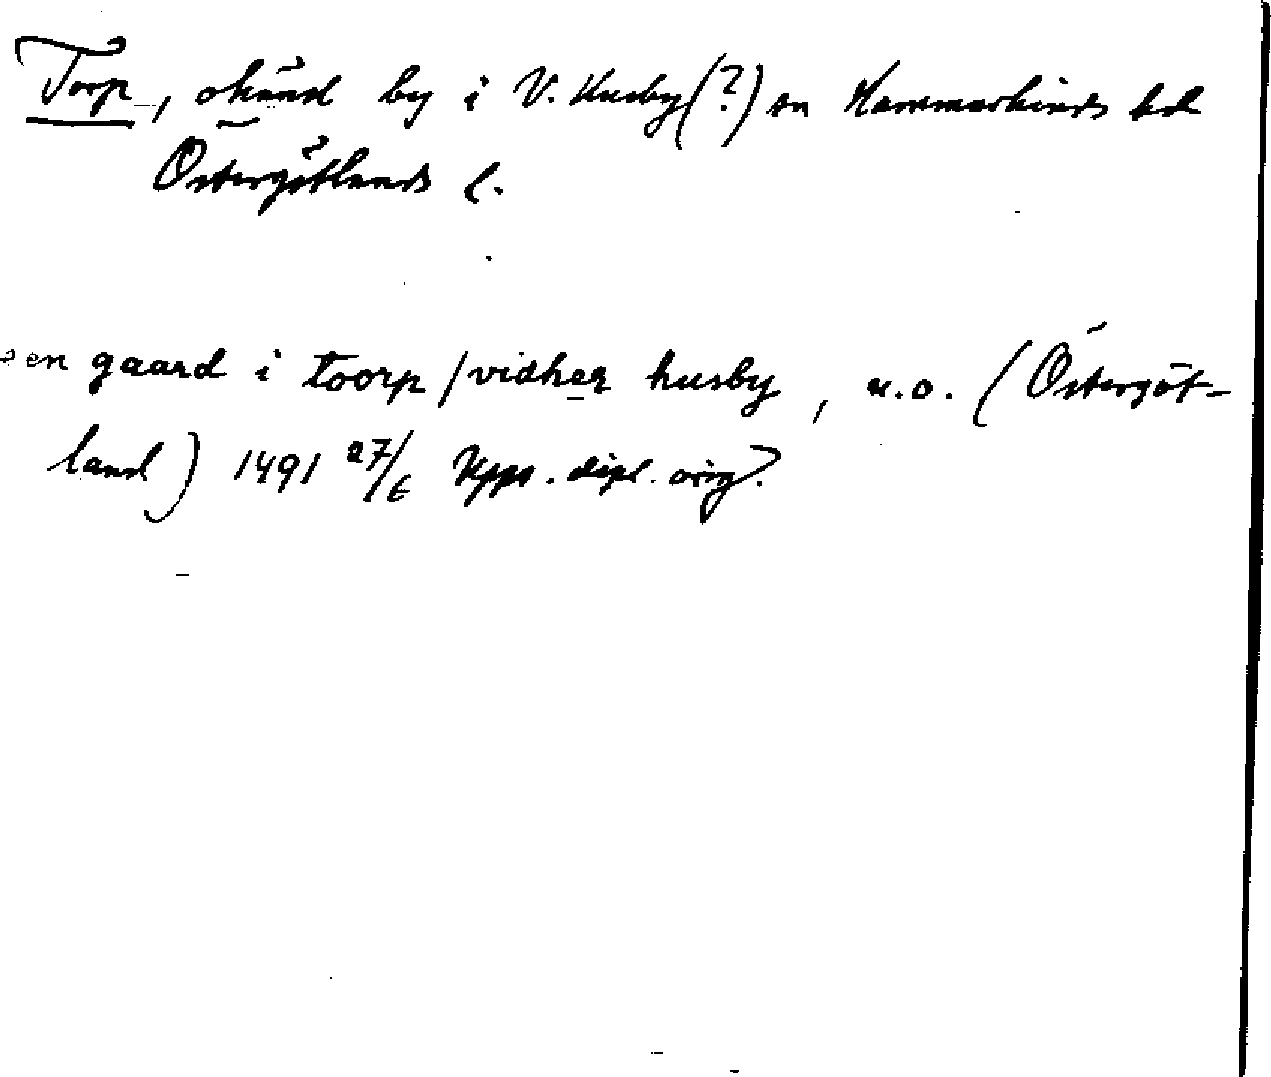 Torp, okänd by i V. Husby (?) sn Hammarkinds hd
Östergötlands l.
en gaard i toorp / vidher husby, u.o. (Östergöt-
land) 1491 27/6 Uppr. dipl. orig?